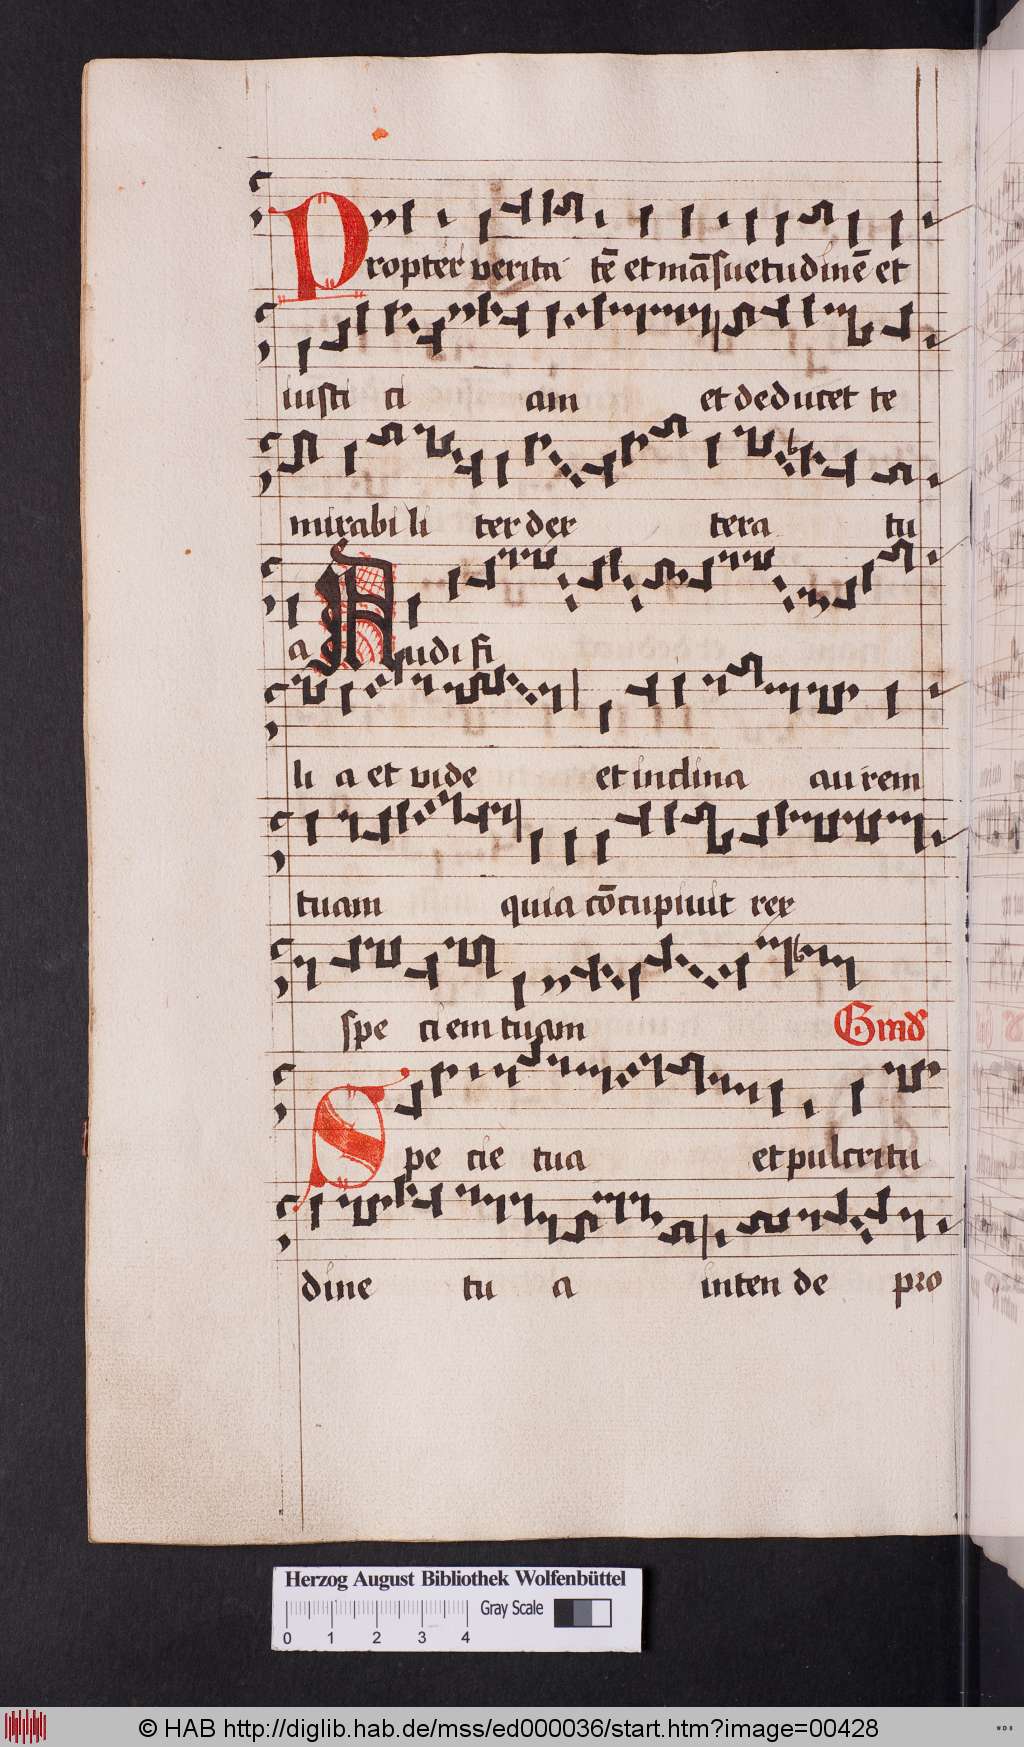 Propter verita tē et māsuetudinē et
iusti ci am et deducet te
mirabi li ter dex tera tu
a Audi fi
li a et vide et inclina au rem
tuam quia cōcupiuit rex
spe ciem tuam Grad
Spe cie tua et pulcritu
dine tu a inten de pro
Herzog August Bibliothek Wolfenbüttel
Gray Scale
0 1 2 3 4
© HAB http://diglib.hab.de/mss/ed000036/start.htm?image=00428